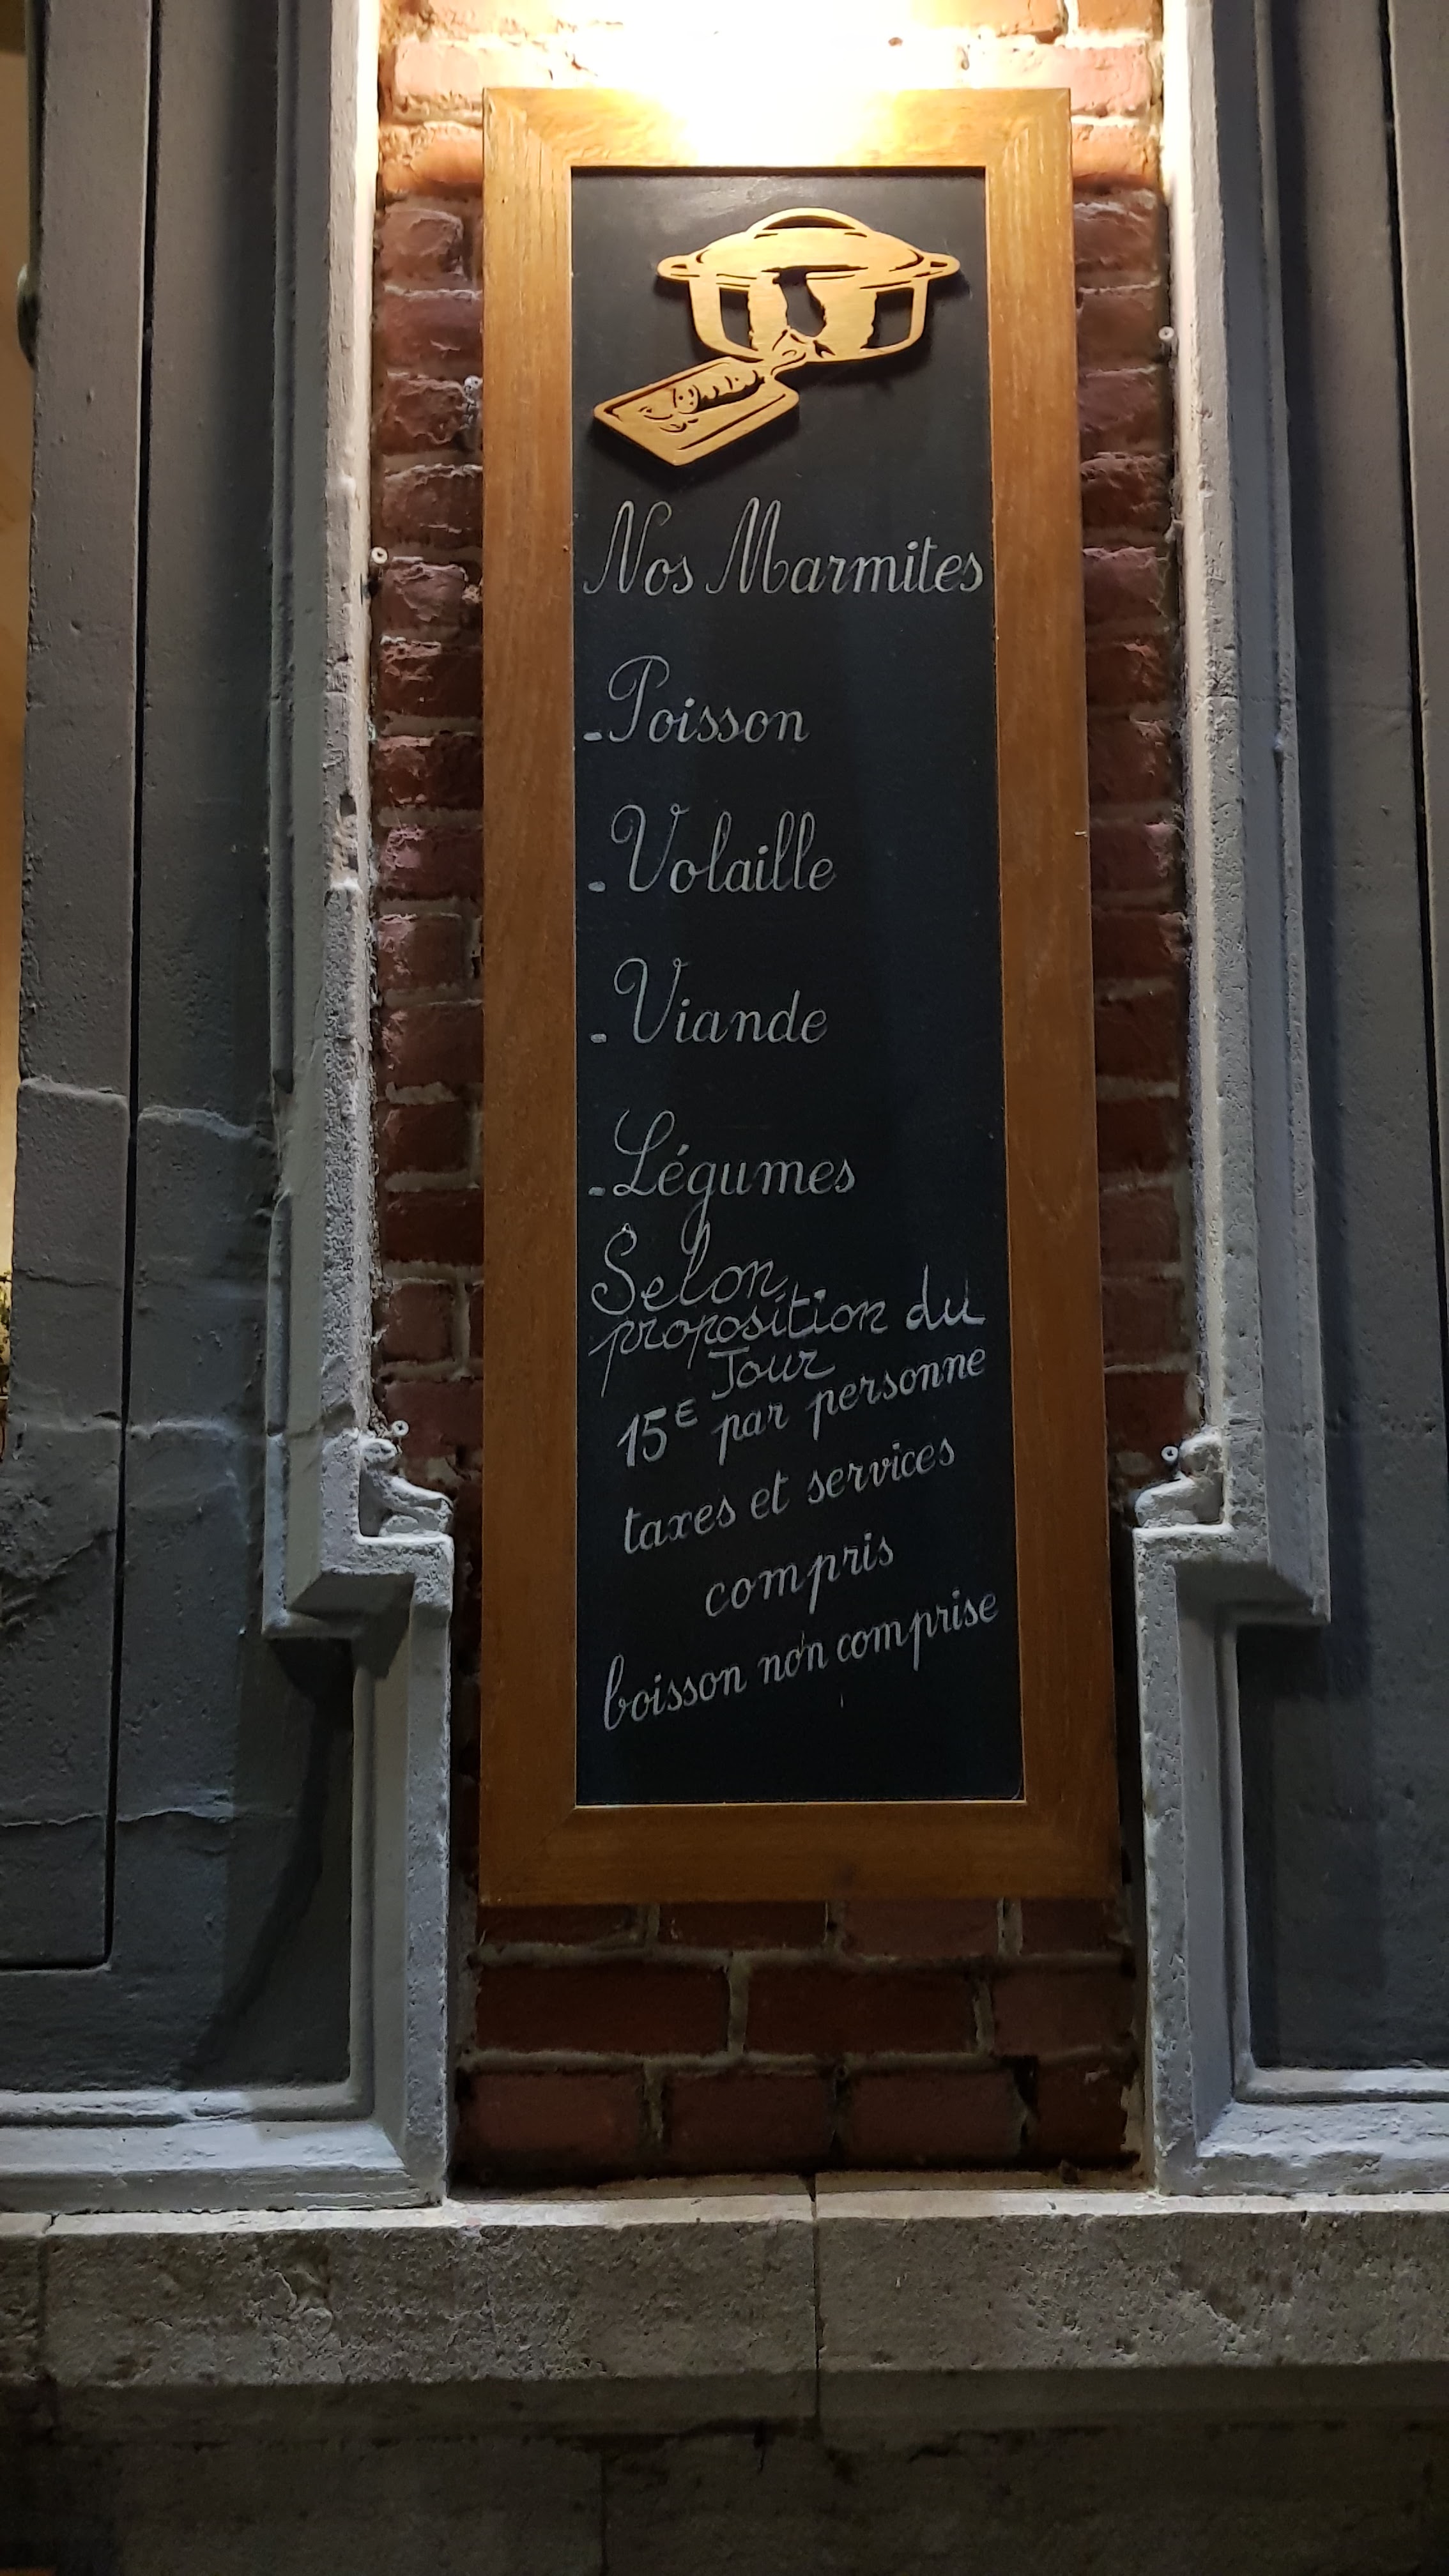 Nos Marmites
-Poisson
-Volaille
-Viande
-Légumes
Selon
proposition du
Jour
15€ par personne
taxes et services
compris
boisson non comprise